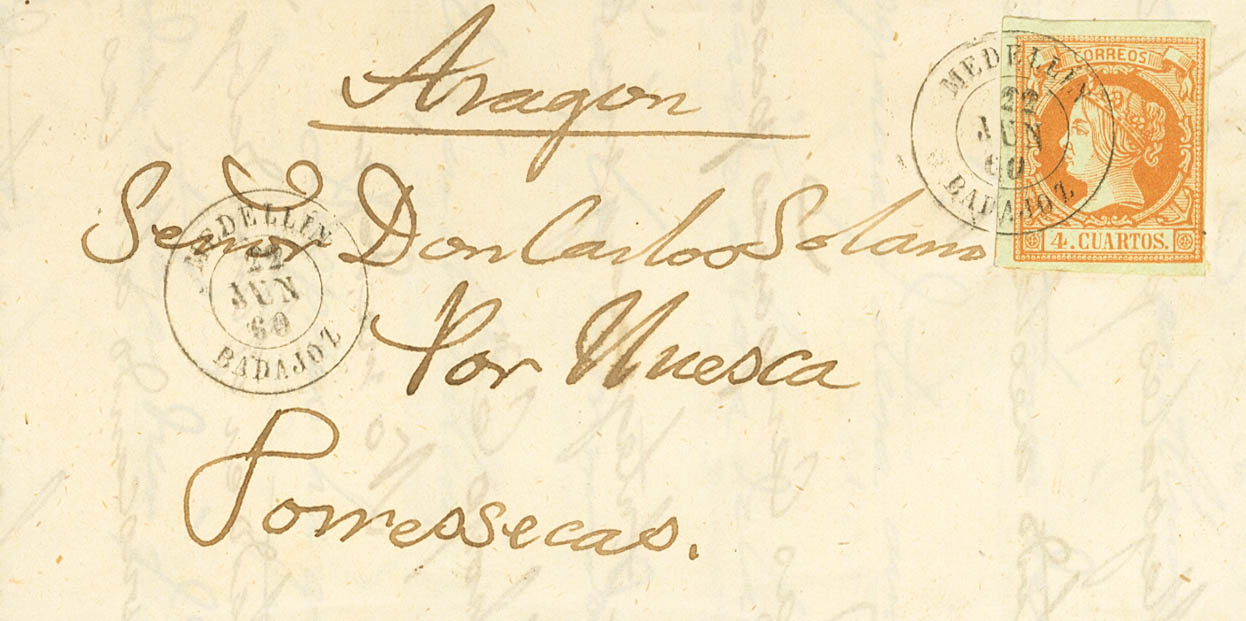 Aragon
Señor Don Carlos Solano
Por Huesca
Torressecas.
MEDELLIN
22
JUN
60
BADAJOZ
CORREOS
4. CUARTOS.
MEDELLIN
22
JUN
60
BADAJOZ